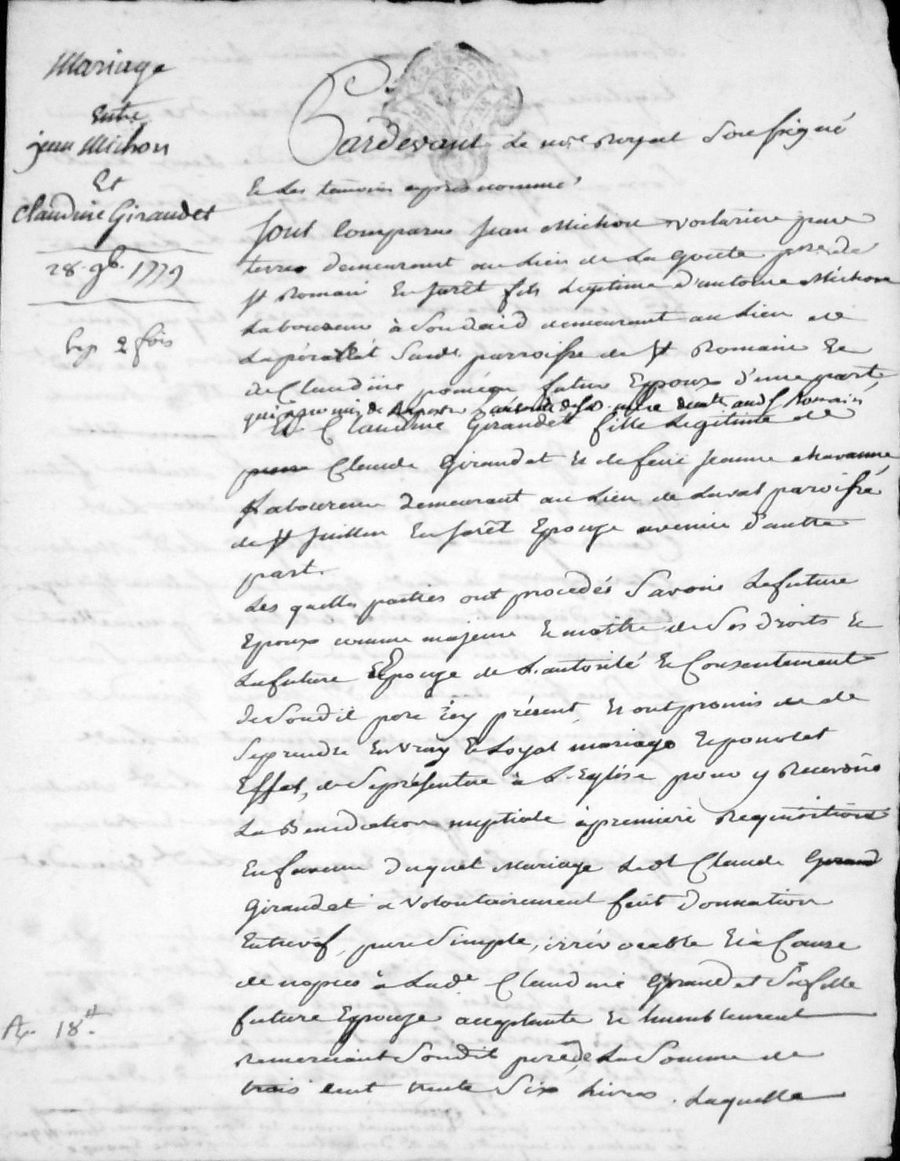 Mariage
Entre
jean Michon
Et
Claudine Giraudet
28. 9b. 1779
exp 2 fois
Pardevant Le not. Royal Soussigné
Et Les temoins après nommé
Sont Comparus Jean Michon voiturier par
terres demeurant au Lieu de La goute psse de
St Romain En forêt fils Legitime d'antoine Michon
Laboureur à demeurant au Lieu de
Sud. parroisse de St Romain Et
de Claudine futur Epoux d'une part
Romain
Et Claudine Giraudet fille Legitime de
Claude Giraudet Et de feue Jeanne chavanne
Laboureur demeurant au Lieu de Laval paroisse
de St Juillien En forêt Epouse avenir d'autre
part.
Les quelles parties ont procédés Savoir Le future
Epoux comme majeur Et maitre de Ses droits Et
La future Epouse de L'autorité Et Consentement
de Soudit pere icy présent, Et ont promis de
Se prendre En vray Et Loyal mariage Et pour cet
Effet, de Se présenter à L'Eglise pour y Recevoir
La Benediction nuptiale à première Requisition
En faveur duquel Mariage Ledt Claude
Giraudet a volontairement fait Donnation
Entrevif, pure Simple, irrévocable Et à Cause
de nopces à Lade Claudine Giraudet Sa fille
future Epouse acceptante Et humblement
remerciant Soudit pere, de La Somme de
trois cent trente Six Livres. Laquelle
18